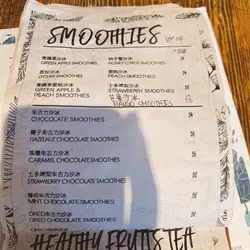 SMOOTHIES 沙冰
青蘋果沙冰
GREEN APPLE SMOOTHIES
柚子蜜沙冰
HONEY CITRUS SMOOTHIES
荔枝沙冰
LYCHEE SMOOTHIES
蜜桃沙冰
PEACH SMOOTHIES
青蘋果蜜桃沙冰
GREEN APPLE &
PEACH SMOOTHIES
士多啤梨沙冰
STRAWBERRY SMOOTHIES
芒果沙冰
MANGO SMOOTHIES
朱古力沙冰
CHOCOLATE SMOOTHIES
榛子朱古力沙冰
HAZELNUT CHOCOLATE SMOOTHIES
焦糖朱古力沙冰
CARAMEL CHOCOLATE SMOOTHIES
士多啤梨朱古力沙冰
STRAWBERRY CHOCOLATE SMOOTHIES
薄荷朱古力沙冰
MINT CHOCOLATE SMOOTHIES
OREO朱古力沙冰
OREO CHOCOLATE SMOOTHIES
HEALTHY FRUITS TEA